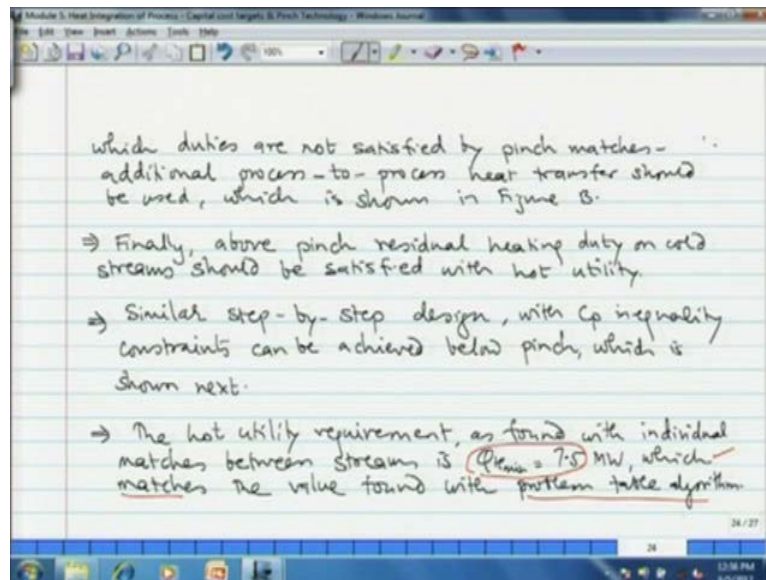 Module 5. Heat Integration of Process - Capital cost targets & Pinch Technology - Windows Journal
File Edit View Insert Actions Tools Help
100%
which duties are not satisfied by pinch matches -
additional process-to-process heat transfer should
be used, which is shown in Figure B.
⇒ Finally, above pinch residual heating duty on cold
streams should be satisfied with hot utility.
⇒ Similar step-by-step design, with Cp inequality
constraints can be achieved below pinch, which is
shown next.
⇒ The hot utility requirement, as found with individual
matches between streams is QHmin = 7.5 MW, which
matches the value found with problem table algorithm.
24 / 27
24
12:56 PM